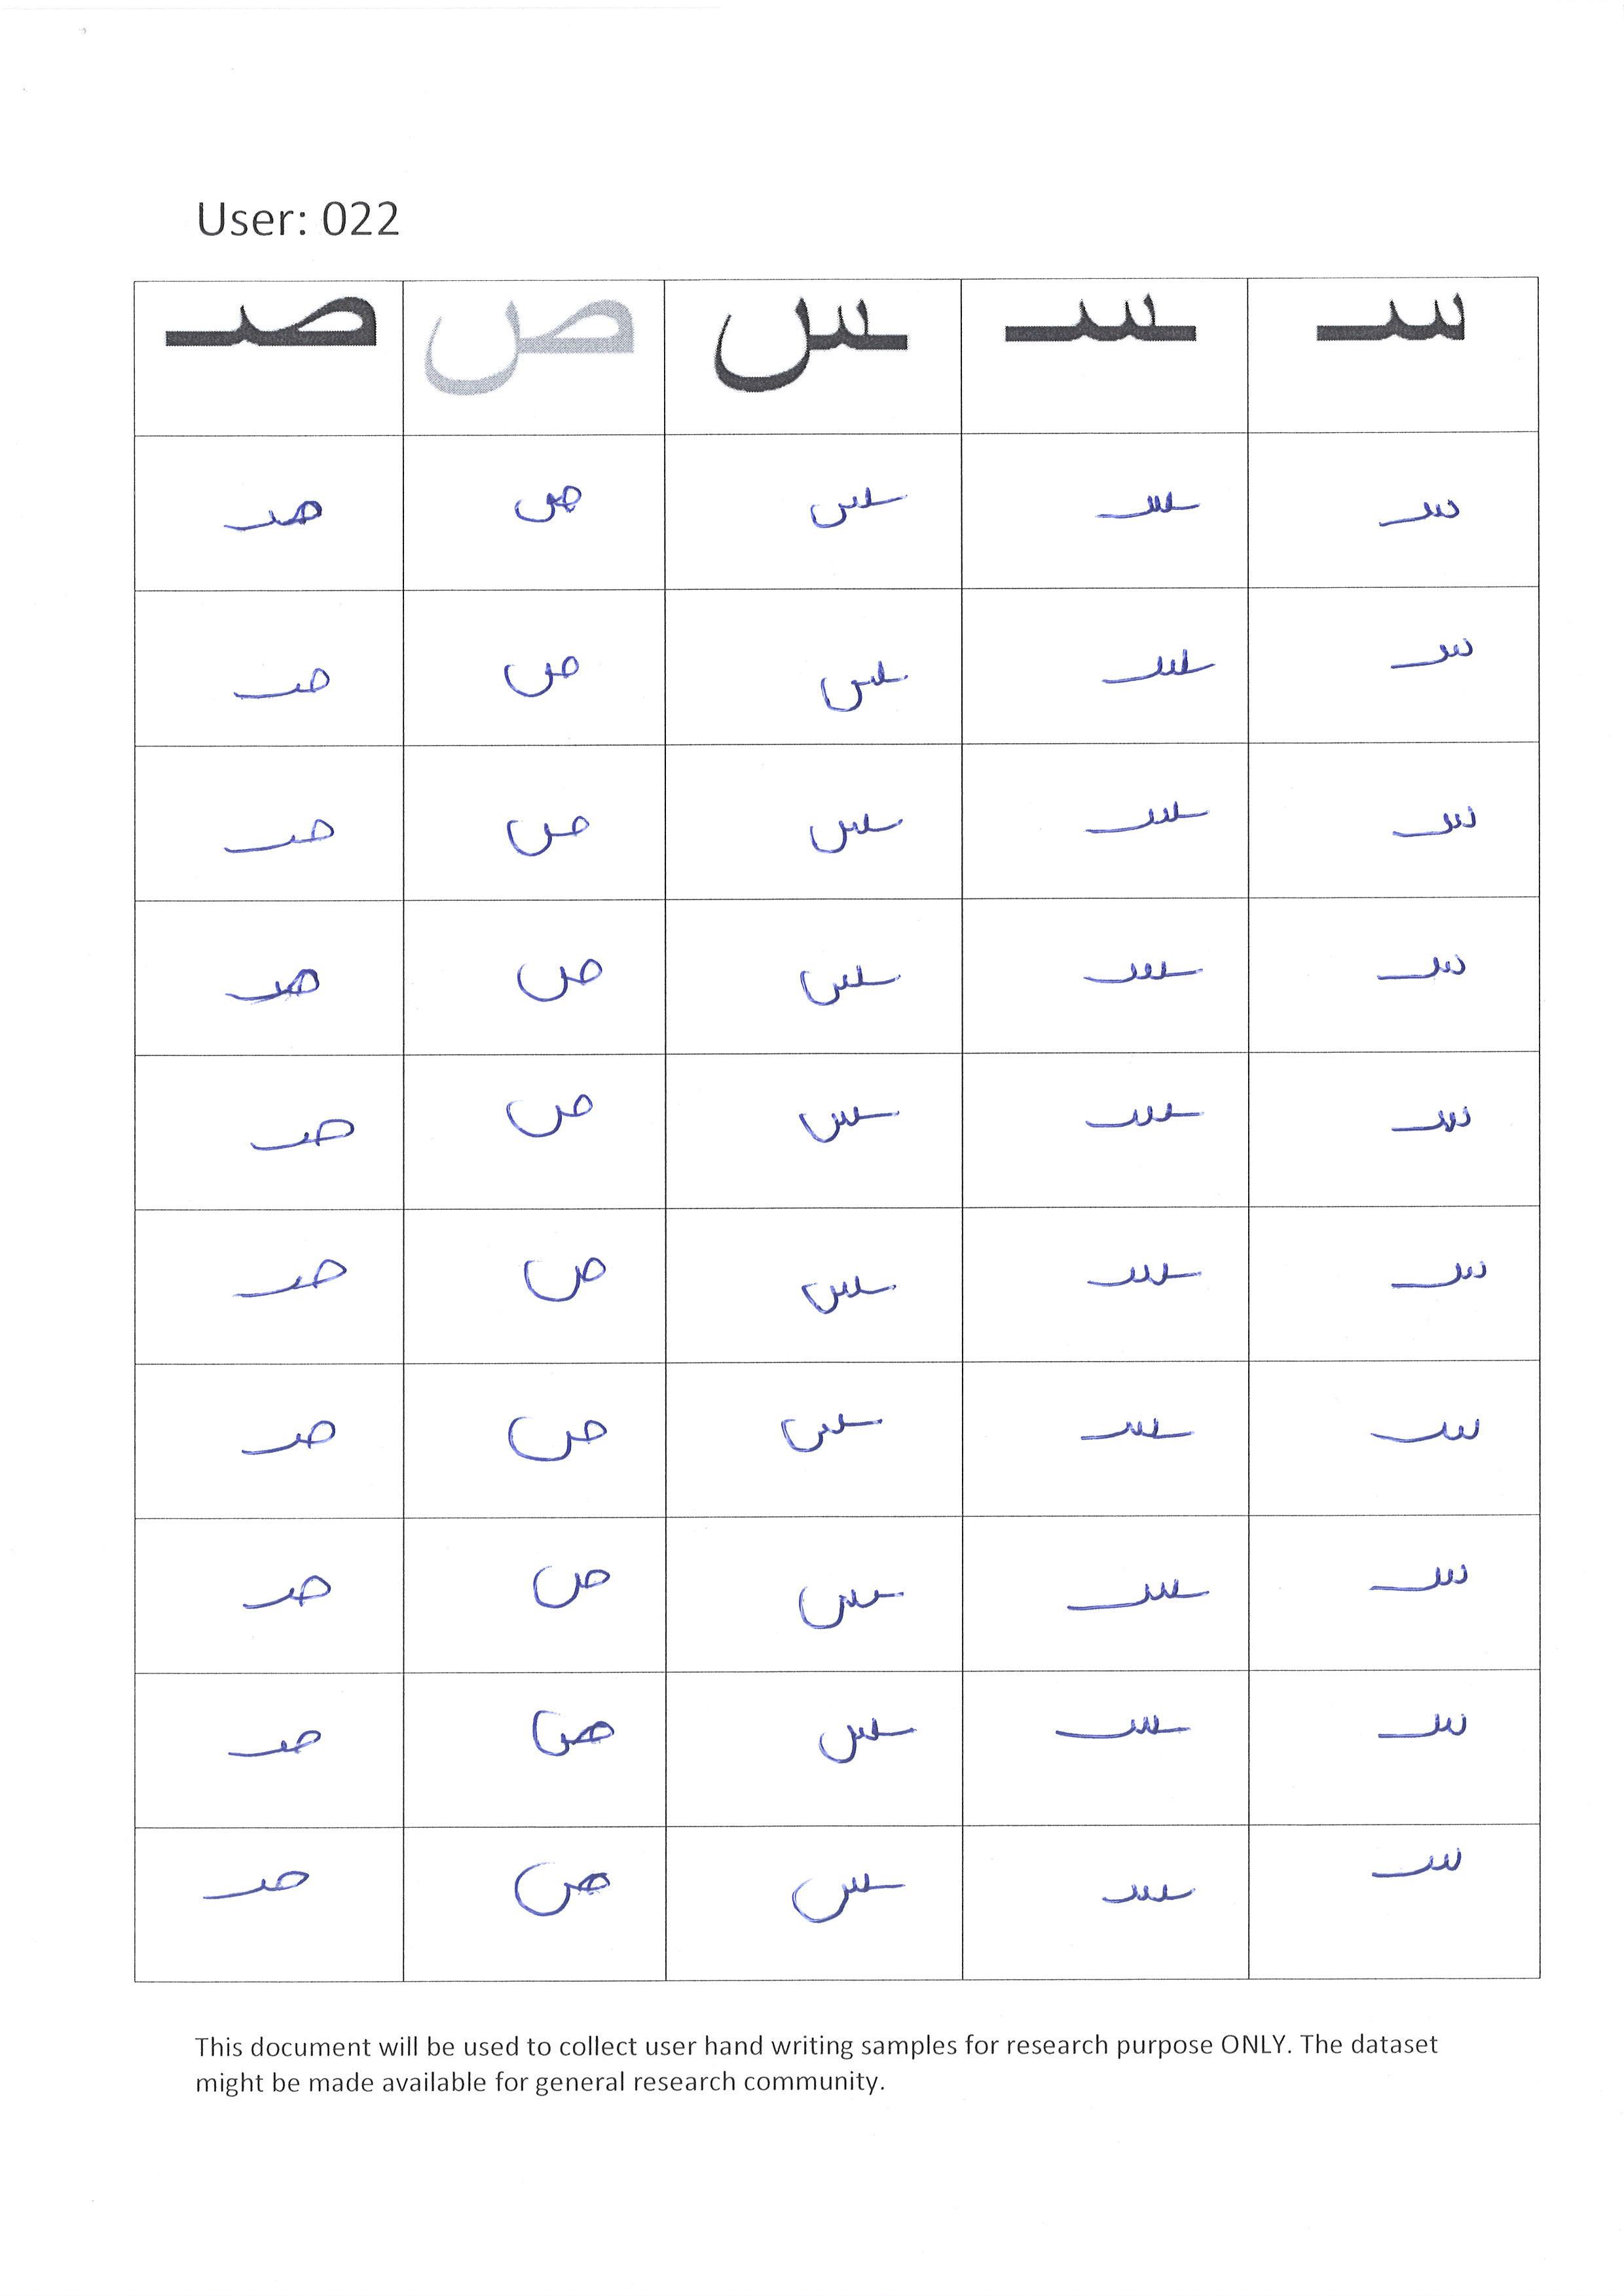 User: 022
سـ ـسـ ـس ص صـ
سـ ـسـ ـس ص صـ
سـ ـسـ ـس ص صـ
سـ ـسـ ـس ص صـ
سـ ـسـ ـس ص صـ
سـ ـسـ ـس ص صـ
سـ ـسـ ـس ص صـ
سـ ـسـ ـس ص صـ
سـ ـسـ ـس ص صـ
سـ ـسـ ـس ص صـ
سـ ـسـ ـس ص صـ
This document will be used to collect user hand writing samples for research purpose ONLY. The dataset
might be made available for general research community.